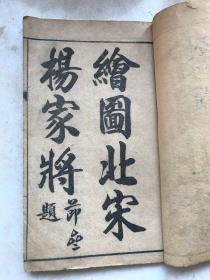 繪圖北宋
楊家將
題